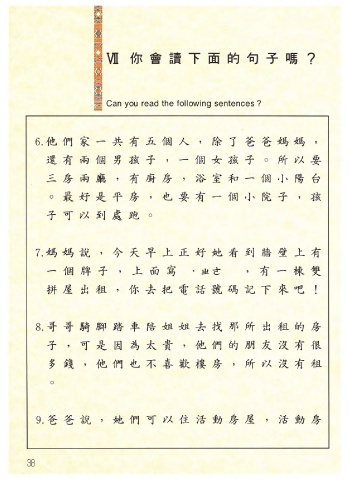 Ⅶ 你會讀下面的句子嗎？
Can you read the following sentences ?
6.他們家一共有五個人，除了爸爸媽媽，
還有兩個男孩子，一個女孩子。所以要
三房兩廳，有廚房，浴室和一個小陽台
。最好是平房，也要有一個小院子，孩
子可以到處跑。
7.媽媽說，今天早上正好她看到牆壁上有
一個牌子，上面寫，有一棟雙
拼屋出租，你去把電話號碼記下來吧！
8.哥哥騎腳踏車陪姐姐去找那所出租的房
子，可是因為太貴，他們的朋友沒有很
多錢，他們也不喜歡樓房，所以沒有租
。
9.爸爸說，她們可以住活動房屋，活動房
38